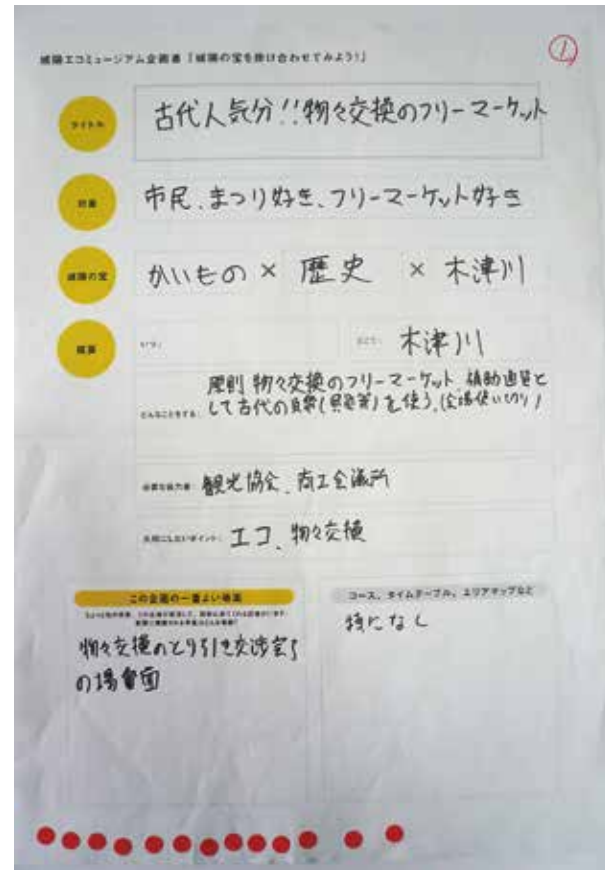 城陽エコミュージアム企画書「城陽の宝を掛け合わせてみよう!」
①
タイトル
古代人気分!!物々交換のフリーマーケット
対象
市民、まつり好き、フリーマーケット好き
城陽の宝
かいもの × 歴史 × 木津川
概要
いつ:
どこで: 木津川
どんなことをする:
原則 物々交換のフリーマーケット 補助通貨と
して古代の貨幣(貝殻等)を使う。(会場使い切り)
必要な協力者: 観光協会、商工会議所
大切にしたいポイント: エコ、物々交換
この企画の一番よい場面
物々交換のとり引き交渉
の場面
コース、タイムテーブル、エリアマップなど
特になし